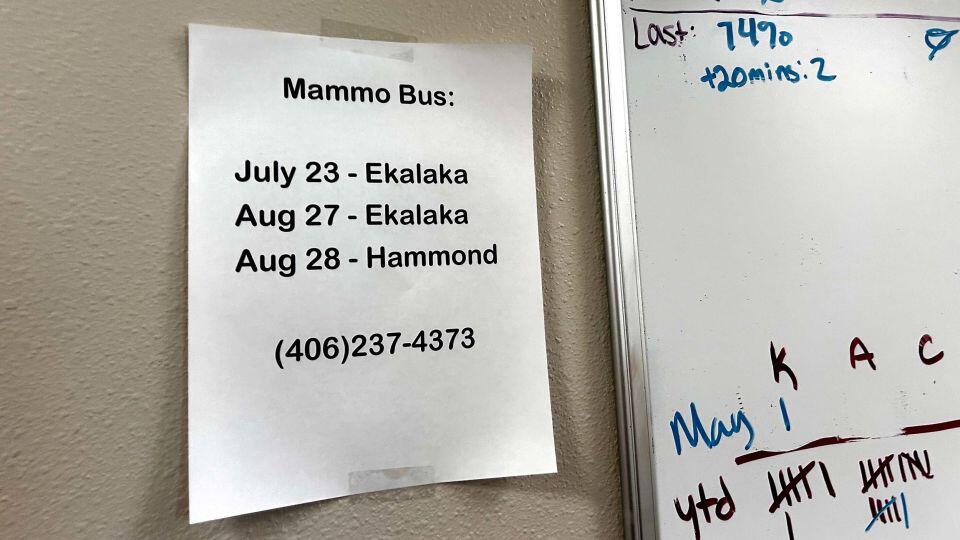 Mammo Bus:
July 23 - Ekalaka
Aug 27 - Ekalaka
Aug 28 - Hammond
(406)237-4373
Last: 74%
+20mins: 2
K A C
May 1
ytd